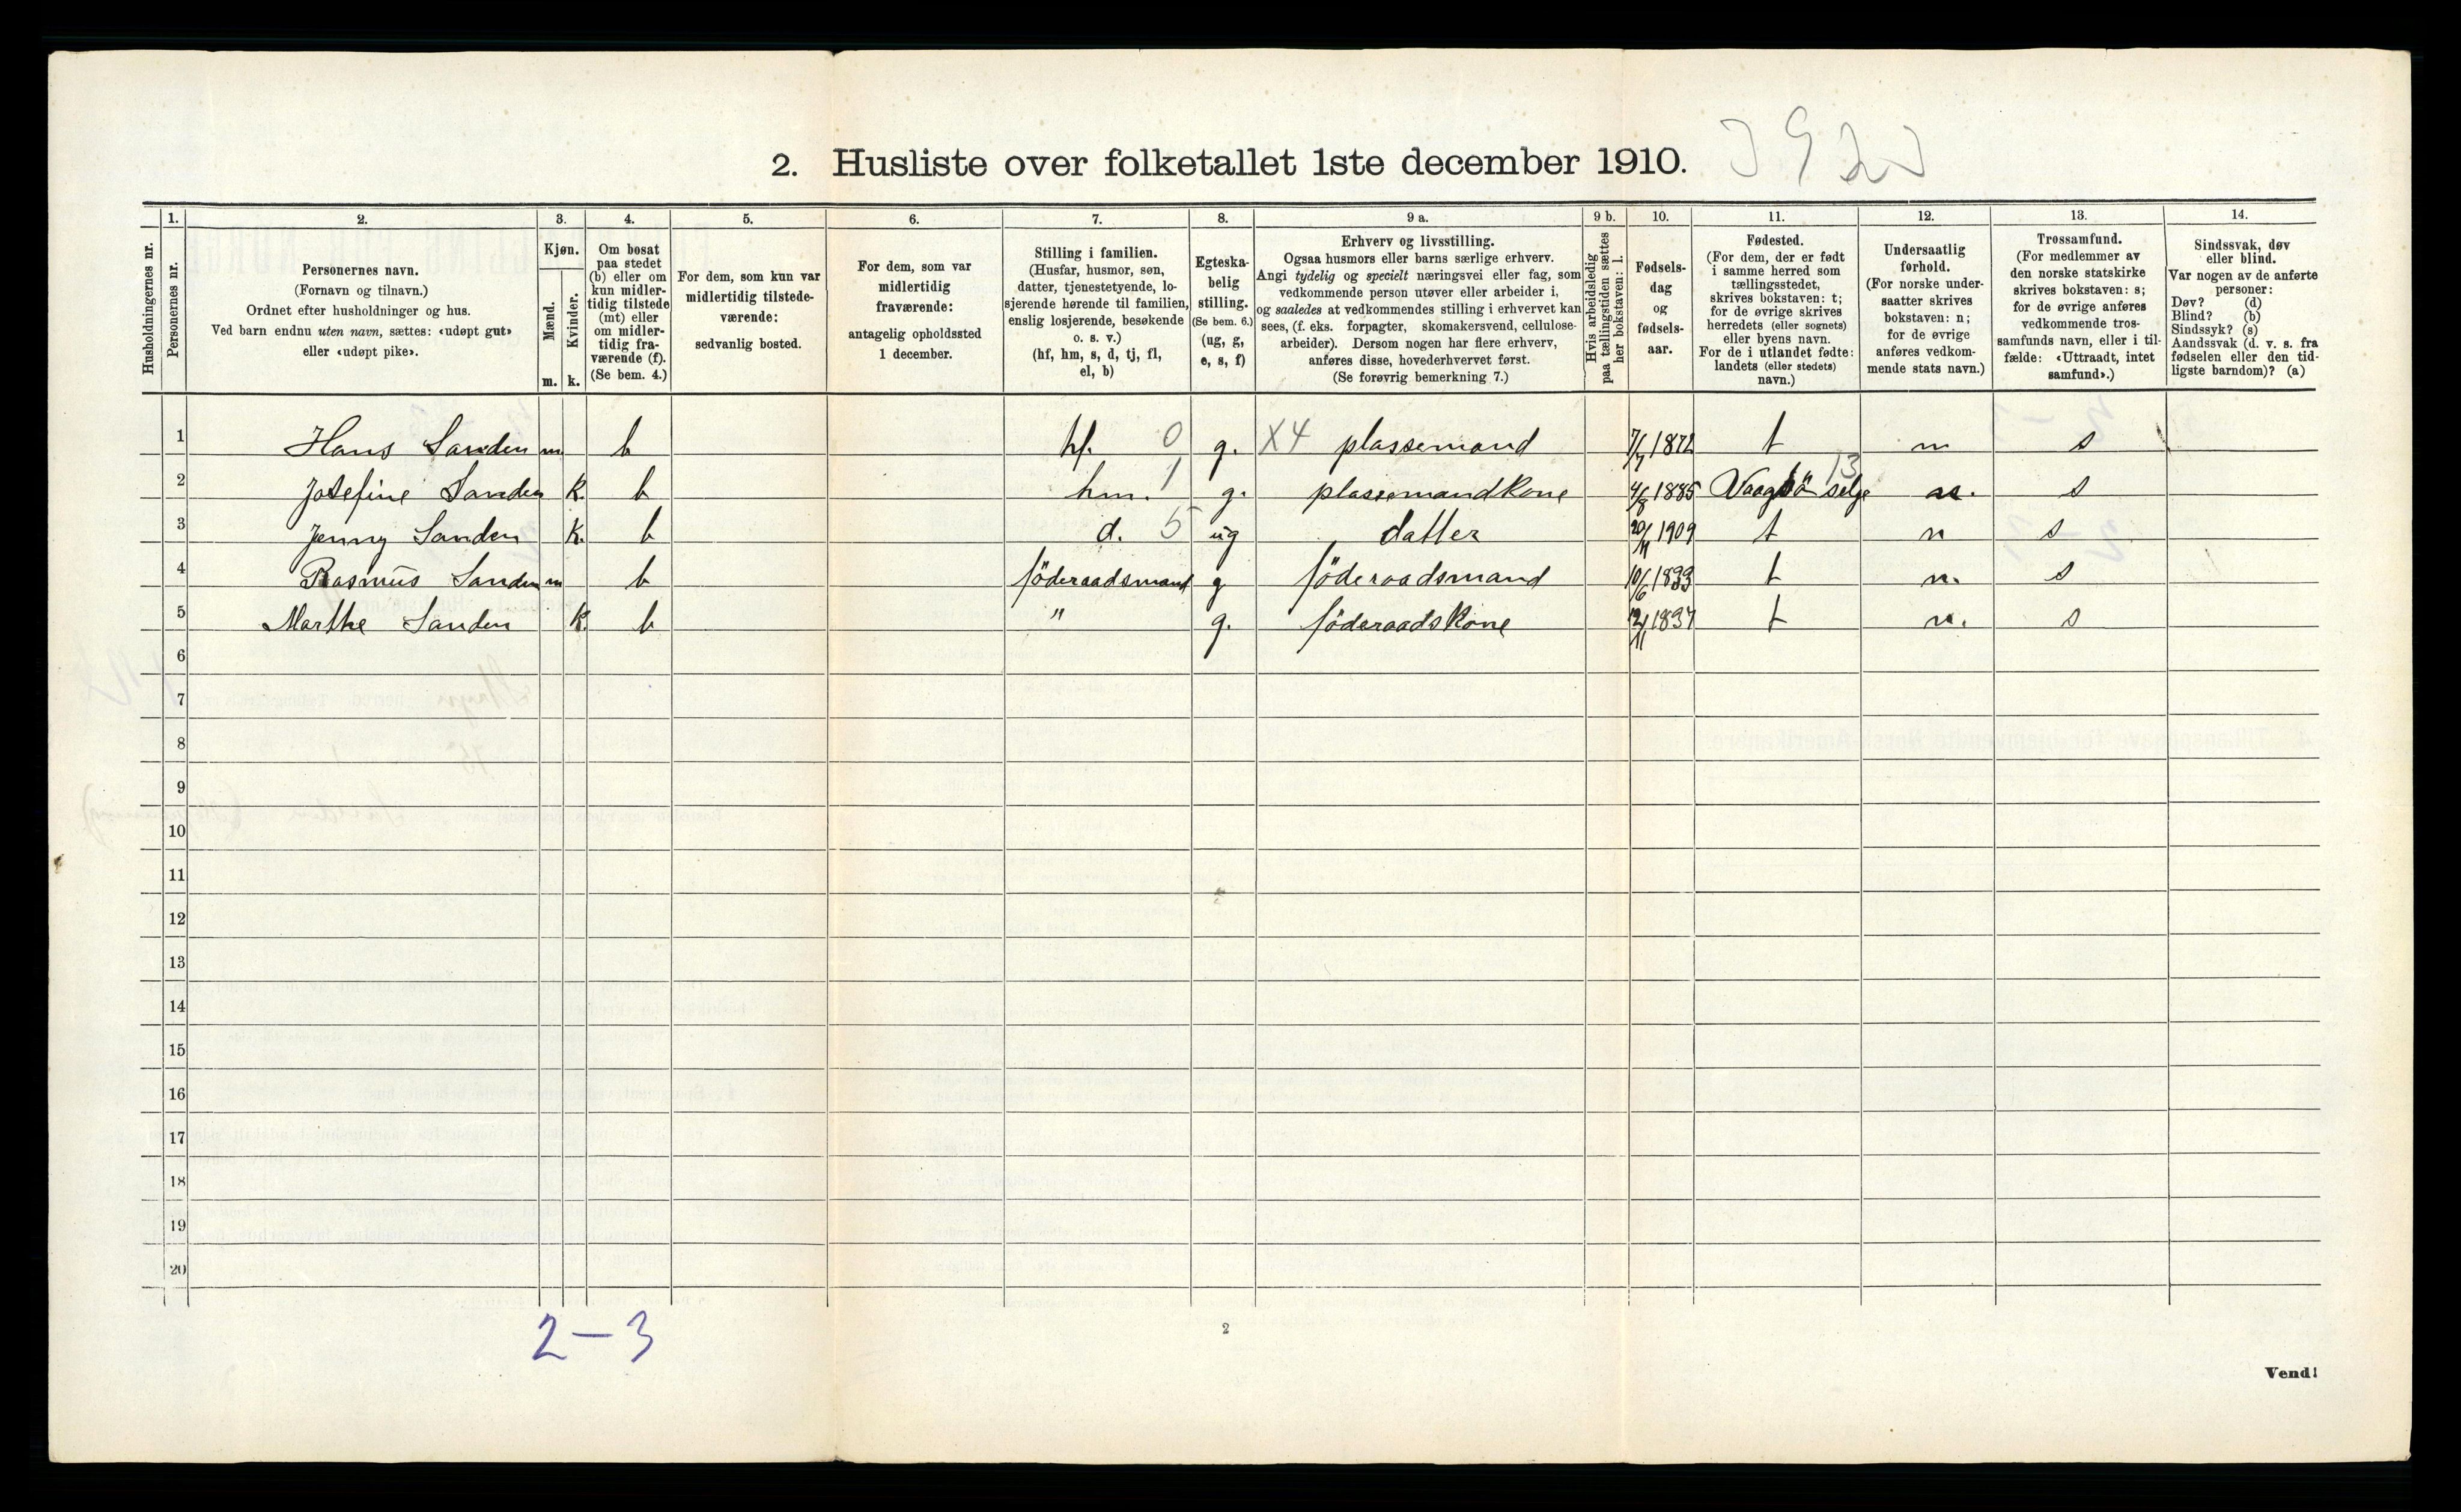 2. Husliste over folketallet 1ste december 1910.
Husholdningernes nr.
1. Personernes nr.
2. Personernes navn.
(Fornavn og tilnavn.)
Ordnet efter husholdninger og hus.
Ved barn endnu uten navn, sættes: «udøpt gut»
eller «udøpt pike».
3. Kjøn.
Mænd. m.
Kvinder. k.
4. Om bosat
paa stedet
(b) eller om
kun midler-
tidig tilstede
(mt) eller
om midler-
tidig fra-
værende (f).
(Se bem. 4.)
5. For dem, som kun var
midlertidig tilstede-
værende:
sedvanlig bosted.
6. For dem, som var
midlertidig
fraværende:
antagelig opholdssted
1 december.
7. Stilling i familien.
(Husfar, husmor, søn,
datter, tjenestetyende, lo-
sjerende hørende til familien,
enslig losjerende, besøkende
o. s. v.)
(hf, hm, s, d, tj, fl,
el, b)
8. Egteska-
belig
stilling.
(Se bem. 6.)
(ug, g,
e, s, f)
9 a. Erhverv og livsstilling.
Ogsaa husmors eller barns særlige erhverv.
Angi tydelig og specielt næringsvei eller fag, som
vedkommende person utøver eller arbeider i,
og saaledes at vedkommendes stilling i erhvervet kan
sees, (f. eks. forpagter, skomakersvend, cellulose-
arbeider). Dersom nogen har flere erhverv,
anføres disse, hovederhvervet først.
(Se forøvrig bemerkning 7.)
9 b. Hvis arbeidsledig
paa tællingstiden sættes
her bokstaven: l.
10. Fødsels-
dag
og
fødsels-
aar.
11. Fødested.
(For dem, der er født
i samme herred som
tællingsstedet,
skrives bokstaven: t;
for de øvrige skrives
herredets (eller sognets)
eller byens navn.
For de i utlandet fødte:
landets (eller stedets)
navn.)
12. Undersaatlig
forhold.
(For norske under-
saatter skrives
bokstaven: n;
for de øvrige
anføres vedkom-
mende stats navn.)
13. Trossamfund.
(For medlemmer av
den norske statskirke
skrives bokstaven: s;
for de øvrige anføres
vedkommende tros-
samfunds navn, eller i til-
fælde: «Uttraadt, intet
samfund».)
14. Sindssvak, døv
eller blind.
Var nogen av de anførte
personer:
Døv? (d)
Blind? (b)
Sindssyk? (s)
Aandssvak (d. v. s. fra
fødselen eller den tid-
ligste barndom)? (a)
1 Hans Sanden m b hf. 0 g. X4 plassemand 7/7 1872 t n s
2 Josefine Sanden k. b hm. 1 g. plassemandkone 4/8 1885 Vaagsö selje 13 n. s
3 Jenny Sanden k. b d. 5 ug datter 20/11 1909 t n s
4 Rasmus Sanden m b föderaadsmand g föderaadsmand 10/6 1833 t n. s
5 Marthe Sanden k. b " g. föderaadskone 12/11 1837 t n. s
6
7
8
9
10
11
12
13
14
15
16
17
18
19
20
2-3
2
Vend!